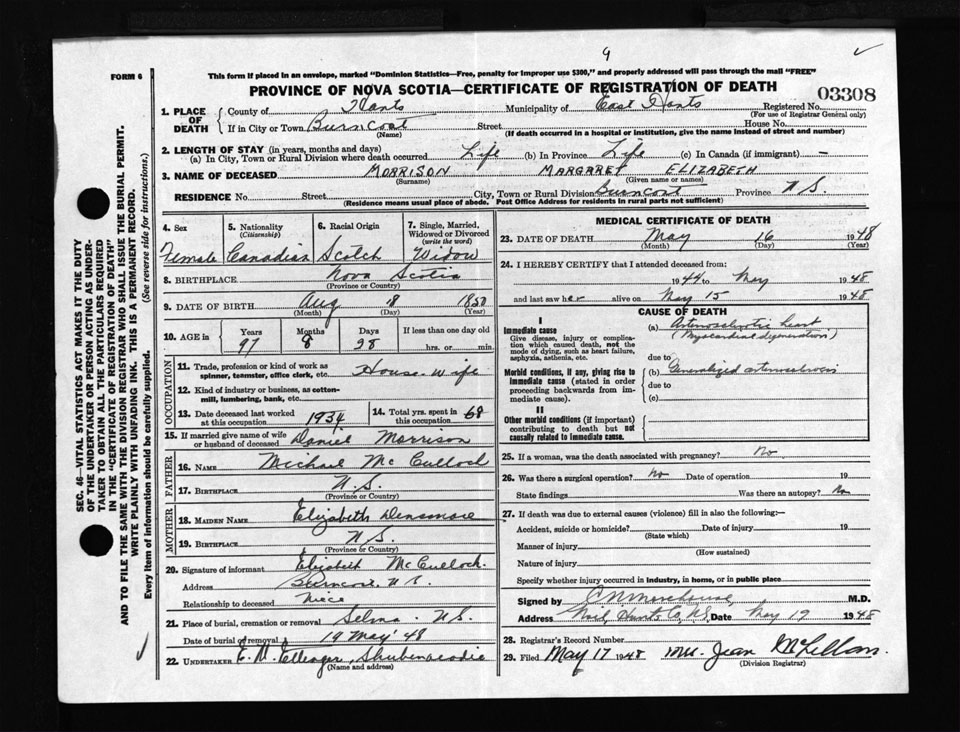 9
FORM 6
This form if placed in an envelope, marked "Dominion Statistics—Free, penalty for improper use $300," and properly addressed will pass through the mail "FREE"
PROVINCE OF NOVA SCOTIA—CERTIFICATE OF REGISTRATION OF DEATH
03308
1. PLACE OF DEATH County of Hants Municipality of East Hants Registered No.
(For use of Registrar General only)
If in City or Town Burncoat Street House No.
(Name) (If death occurred in a hospital or institution, give the name instead of street and number)
2. LENGTH OF STAY (in years, months and days)
(a) In City, Town or Rural Division where death occurred Life (b) In Province Life (c) In Canada (if immigrant) —
3. NAME OF DECEASED MORRISON MARGARET ELIZABETH
(Surname) (Given name or names)
RESIDENCE No. Street City, Town or Rural Division Burncoat Province N.S.
(Residence means usual place of abode. Post Office Address for residents in rural parts not sufficient)
4. Sex 5. Nationality (Citizenship) 6. Racial Origin 7. Single, Married, Widowed or Divorced (write the word)
Female Canadian Scotch Widow
8. BIRTHPLACE Nova Scotia
(Province or Country)
9. DATE OF BIRTH Aug 18 1850
(Month) (Day) (Year)
10. AGE in Years Months Days If less than one day old
97 8 28 hrs. or min.
OCCUPATION
11. Trade, profession or kind of work as spinner, teamster, office clerk, etc. House-wife
12. Kind of industry or business, as cotton-mill, lumbering, bank, etc.
13. Date deceased last worked at this occupation 1934 14. Total yrs. spent in this occupation 68
15. If married give name of wife or husband of deceased Daniel Morrison
FATHER
16. NAME Michael McCulloch
17. BIRTHPLACE N.S.
(Province or Country)
MOTHER
18. MAIDEN NAME Elizabeth Densmore
19. BIRTHPLACE N.S.
(Province or Country)
20. Signature of informant Elizabeth McCulloch.
Address Burncoat, N.S.
Relationship to deceased niece
21. Place of burial, cremation or removal Selma. N.S.
Date of burial or removal 19 May '48
22. UNDERTAKER Shubenacadie
(Name and address)
MEDICAL CERTIFICATE OF DEATH
23. DATE OF DEATH May 16 1948
(Month) (Day) (Year)
24. I HEREBY CERTIFY that I attended deceased from:
1944 to May 1948
and last saw her alive on May 15 1948
CAUSE OF DEATH
I
Immediate cause
Give disease, injury or complication which caused death, not the mode of dying, such as heart failure, asphyxia, asthenia, etc.
(a) Arteriosclerotic heart
(Myocardial degeneration)
due to
Morbid conditions, if any, giving rise to immediate cause (stated in order proceeding backwards from immediate cause).
(b) Generalized arteriosclerosis
due to
(c)
II
Other morbid conditions (if important) contributing to death but not causally related to immediate cause.
25. If a woman, was the death associated with pregnancy? no
26. Was there a surgical operation? no Date of operation 19
State findings Was there an autopsy? no
27. If death was due to external causes (violence) fill in also the following:—
Accident, suicide or homicide? Date of injury 19
(State which)
Manner of injury
(How sustained)
Nature of injury
Specify whether injury occurred in industry, in home, or in public place
Signed by M.D.
Address Noel, Hants Co, N.S. Date May 19 1948
28. Registrar's Record Number
29. Filed May 17 1948 Mrs. Jean McLellan.
(Division Registrar)
SEC. 46—VITAL STATISTICS ACT MAKES IT THE DUTY
OF THE UNDERTAKER OR PERSON ACTING AS UNDER-
TAKER TO OBTAIN ALL THE PARTICULARS REQUIRED
IN THE "CERTIFICATE OF REGISTRATION OF DEATH"
AND TO FILE THE SAME WITH THE DIVISION REGISTRAR WHO SHALL ISSUE THE BURIAL PERMIT.
WRITE PLAINLY WITH UNFADING INK. THIS IS A PERMANENT RECORD.
Every item of information should be carefully supplied. (See reverse side for instructions.)